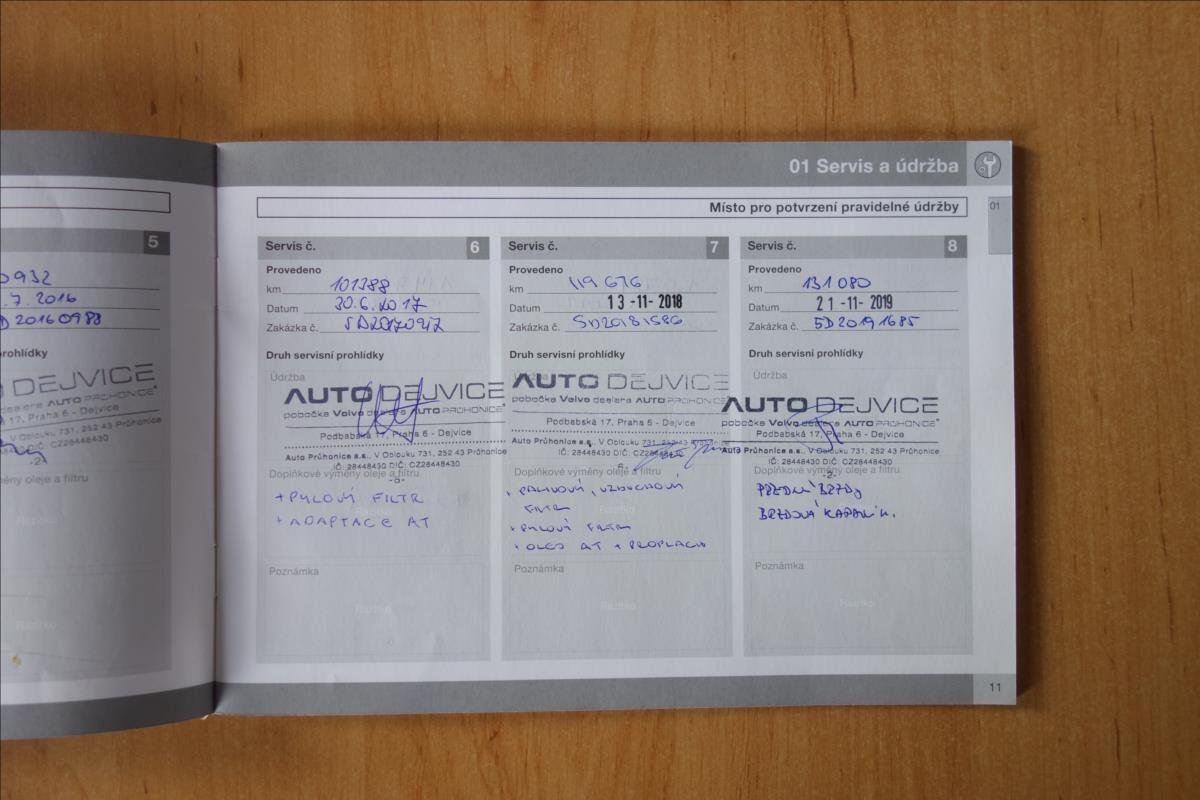 5
0932
.7. 2016
D 20160983
prohlídky
O DEJVICE
dealera AUTO PRŮHONICE
17, Praha 6 - Dejvice
V Oblouku 731, 252 43 Průhonice
CZ28448430
-2-
měny oleje a filtru
Razítko
01 Servis a údržba
01
Místo pro potvrzení pravidelné údržby
Servis č. 6
Provedeno
km 101388
Datum 30.6.2017
Zakázka č. SD20170917
Druh servisní prohlídky
Údržba
AUTO DEJVICE
pobočka Volvo dealera AUTO PRŮHONICE
Podbabská 17, Praha 6 - Dejvice
Auto Průhonice a.s., V Oblouku 731, 252 43 Průhonice
IČ: 28448430 DIČ: CZ28448430
Doplňkové výměny oleje a filtru
+ PYLOVÝ FILTR
+ ADAPTACE AT
Poznámka
Razítko
Servis č. 7
Provedeno
km 119676
Datum 13 -11- 2018
Zakázka č. SD20181586
Druh servisní prohlídky
AUTO DEJVICE
pobočka Volvo dealera AUTO PRŮHONICE
Podbabská 17, Praha 6 - Dejvice
Auto Průhonice a.s., V Oblouku 731, 252 43 Průhonice
IČ: 28448430 DIČ: CZ28448430
Doplňkové výměny oleje a filtru
+ PALIVOVÝ, VZDUCHOVÝ
FILTR
+ PYLOVÝ FILTR
+ OLEJ AT + PROPLACH
Poznámka
Razítko
Servis č. 8
Provedeno
km 131 080
Datum 21 -11- 2019
Zakázka č. SD20191685
Druh servisní prohlídky
Údržba
AUTO DEJVICE
pobočka Volvo dealera AUTO PRŮHONICE
Podbabská 17, Praha 6 - Dejvice
Auto Průhonice a.s., V Oblouku 731, 252 43 Průhonice
IČ: 28448430 DIČ: CZ28448430
-2-
Doplňkové výměny oleje a filtru
PŘEDNÍ BRZDY
BRZDOVÁ KAPALIN.
Poznámka
Razítko
11